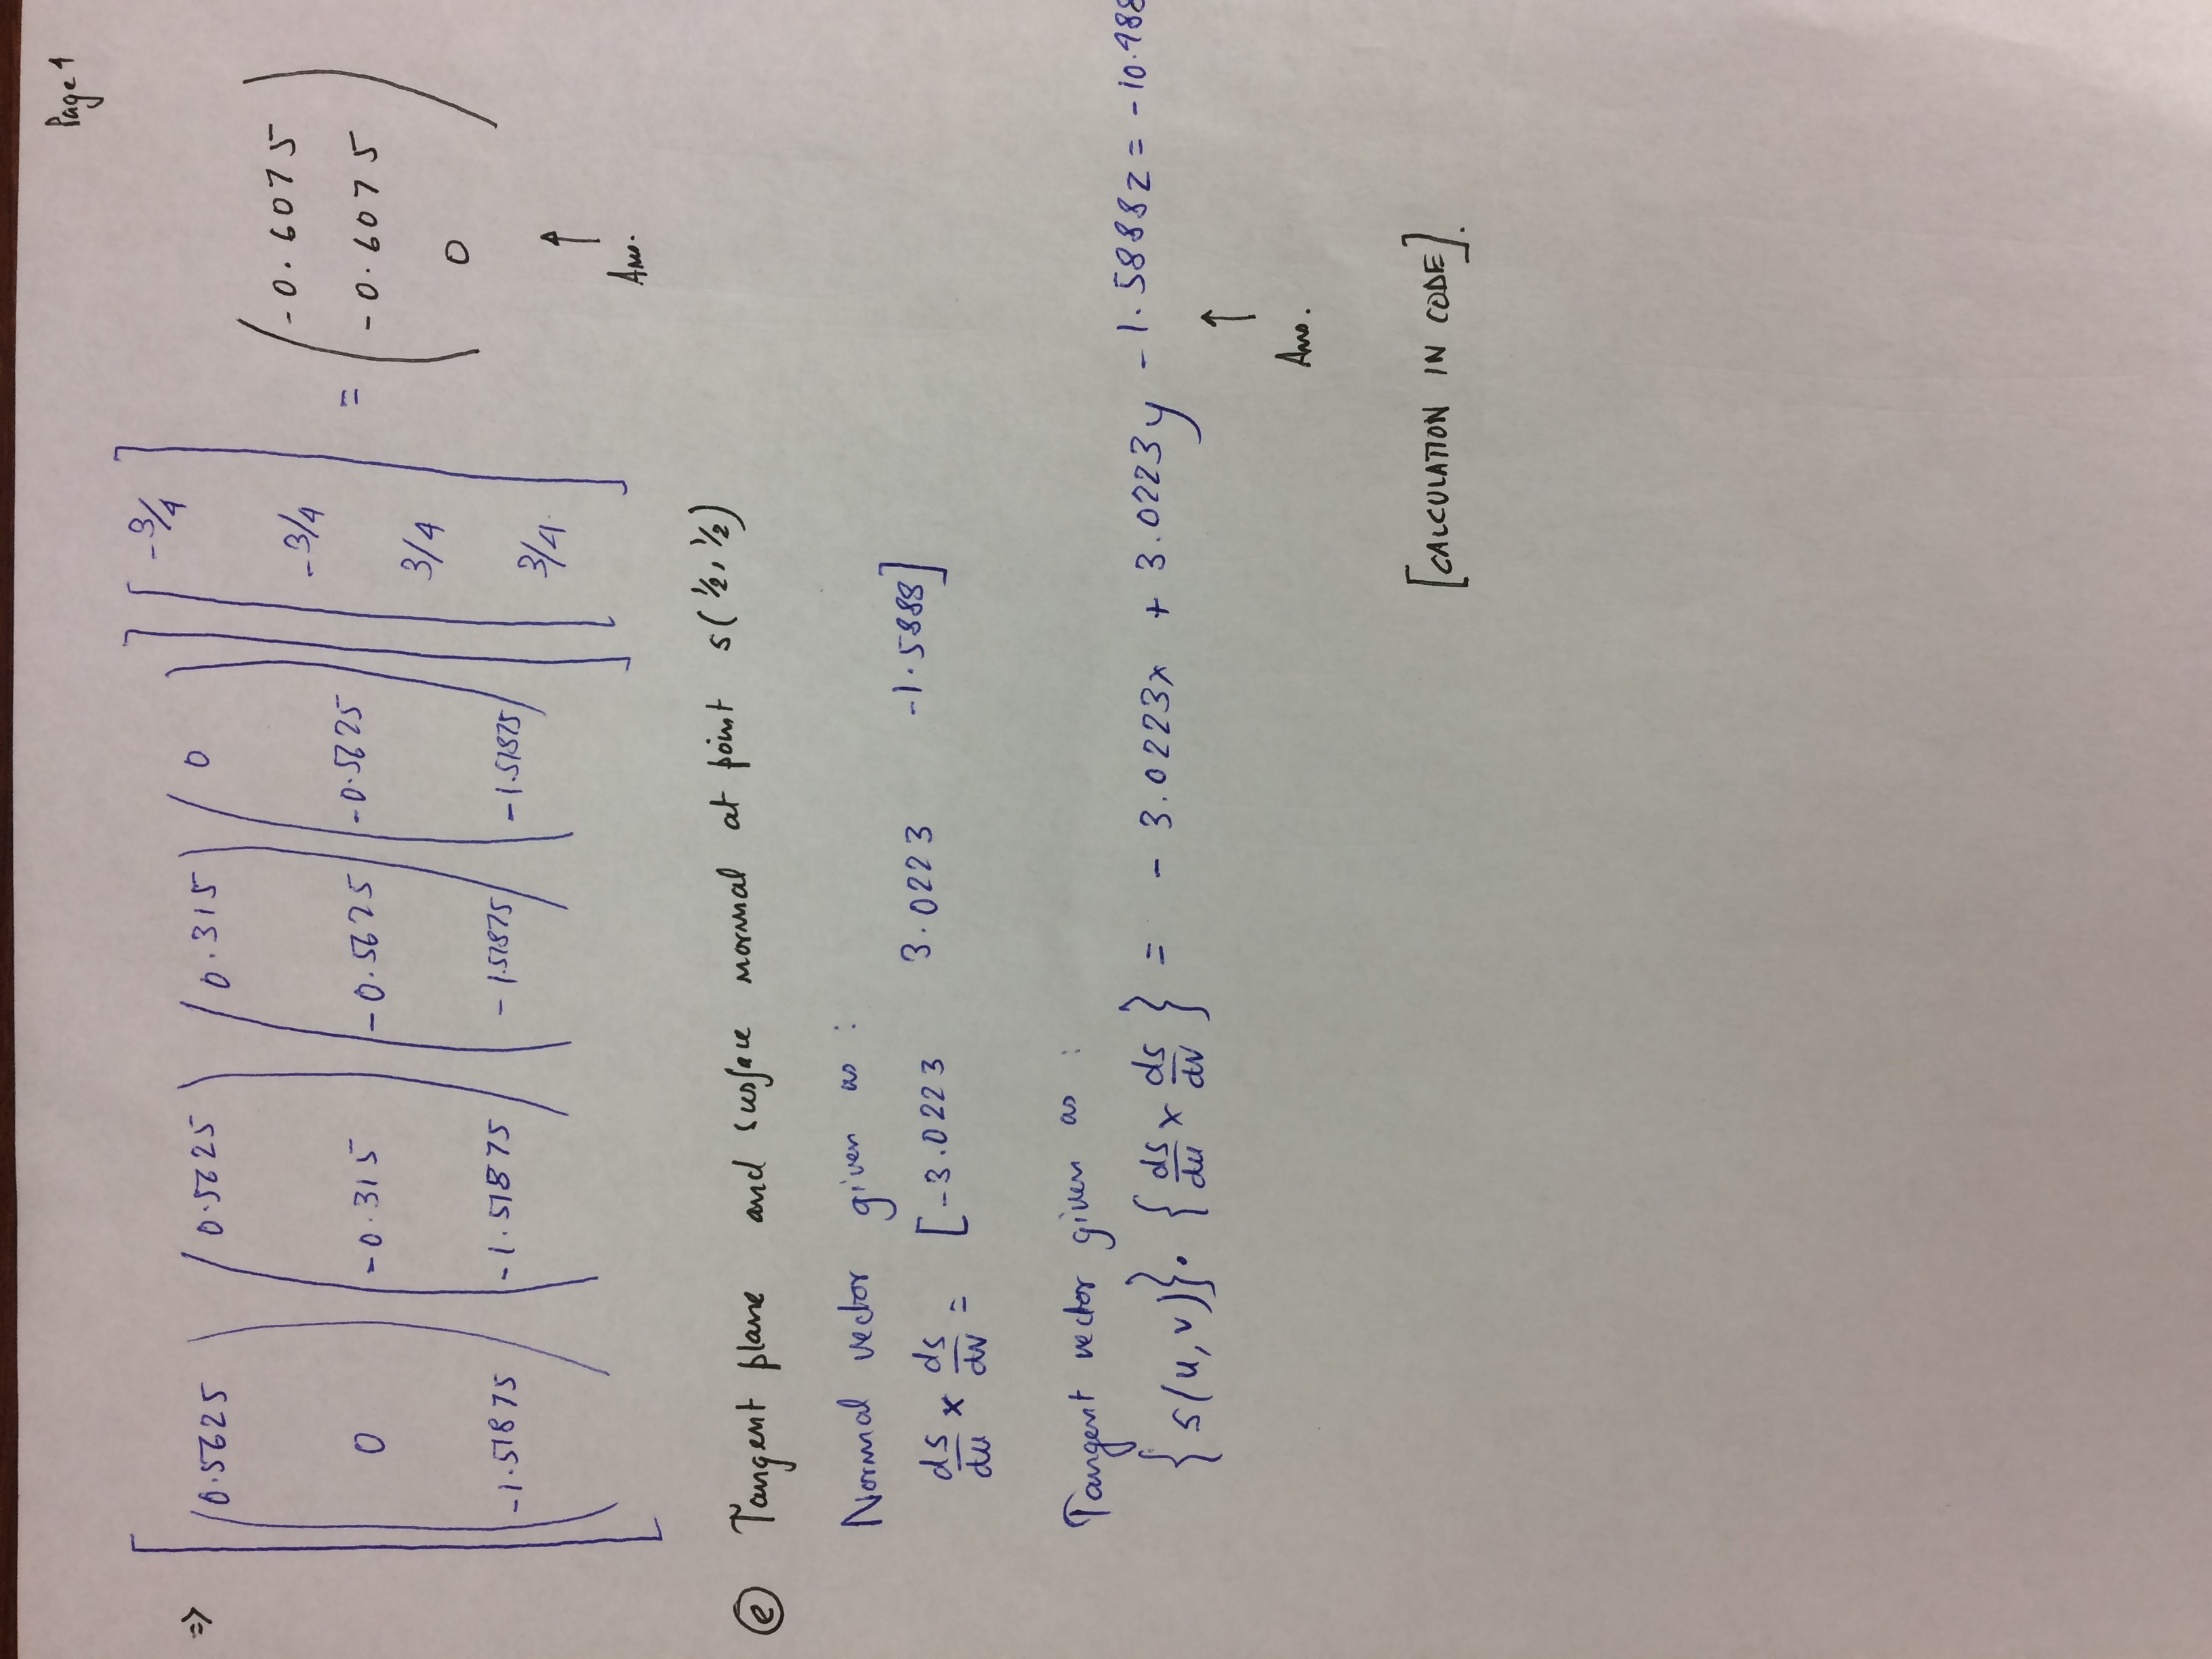 Page 4
⇒ [ (0.5625 0 -1.51875) (0.5625 -0.315 -1.51875) (0.315 -0.5625 -1.51875) (0 -0.5625 -1.51875) ] [ -3/4 -3/4 3/4 3/4 ] = ( -0.6075 -0.6075 0 )
↑
Ans.
(e) Tangent plane and surface normal at point s(1/2, 1/2)
Normal vector given as :
ds/du × ds/dv = [ -3.0223 3.0223 -1.5888 ]
Tangent vector given as :
{ s(u, v) } . { ds/du × ds/dv } = - 3.0223x + 3.0223y - 1.5888z = -10.988
↑
Ans.
[CALCULATION IN CODE].